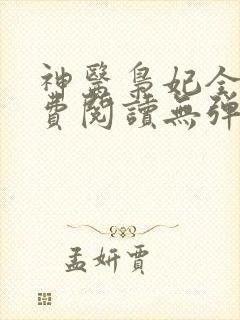 神醫梟妃全
費閱讀無彈
孟妍賈